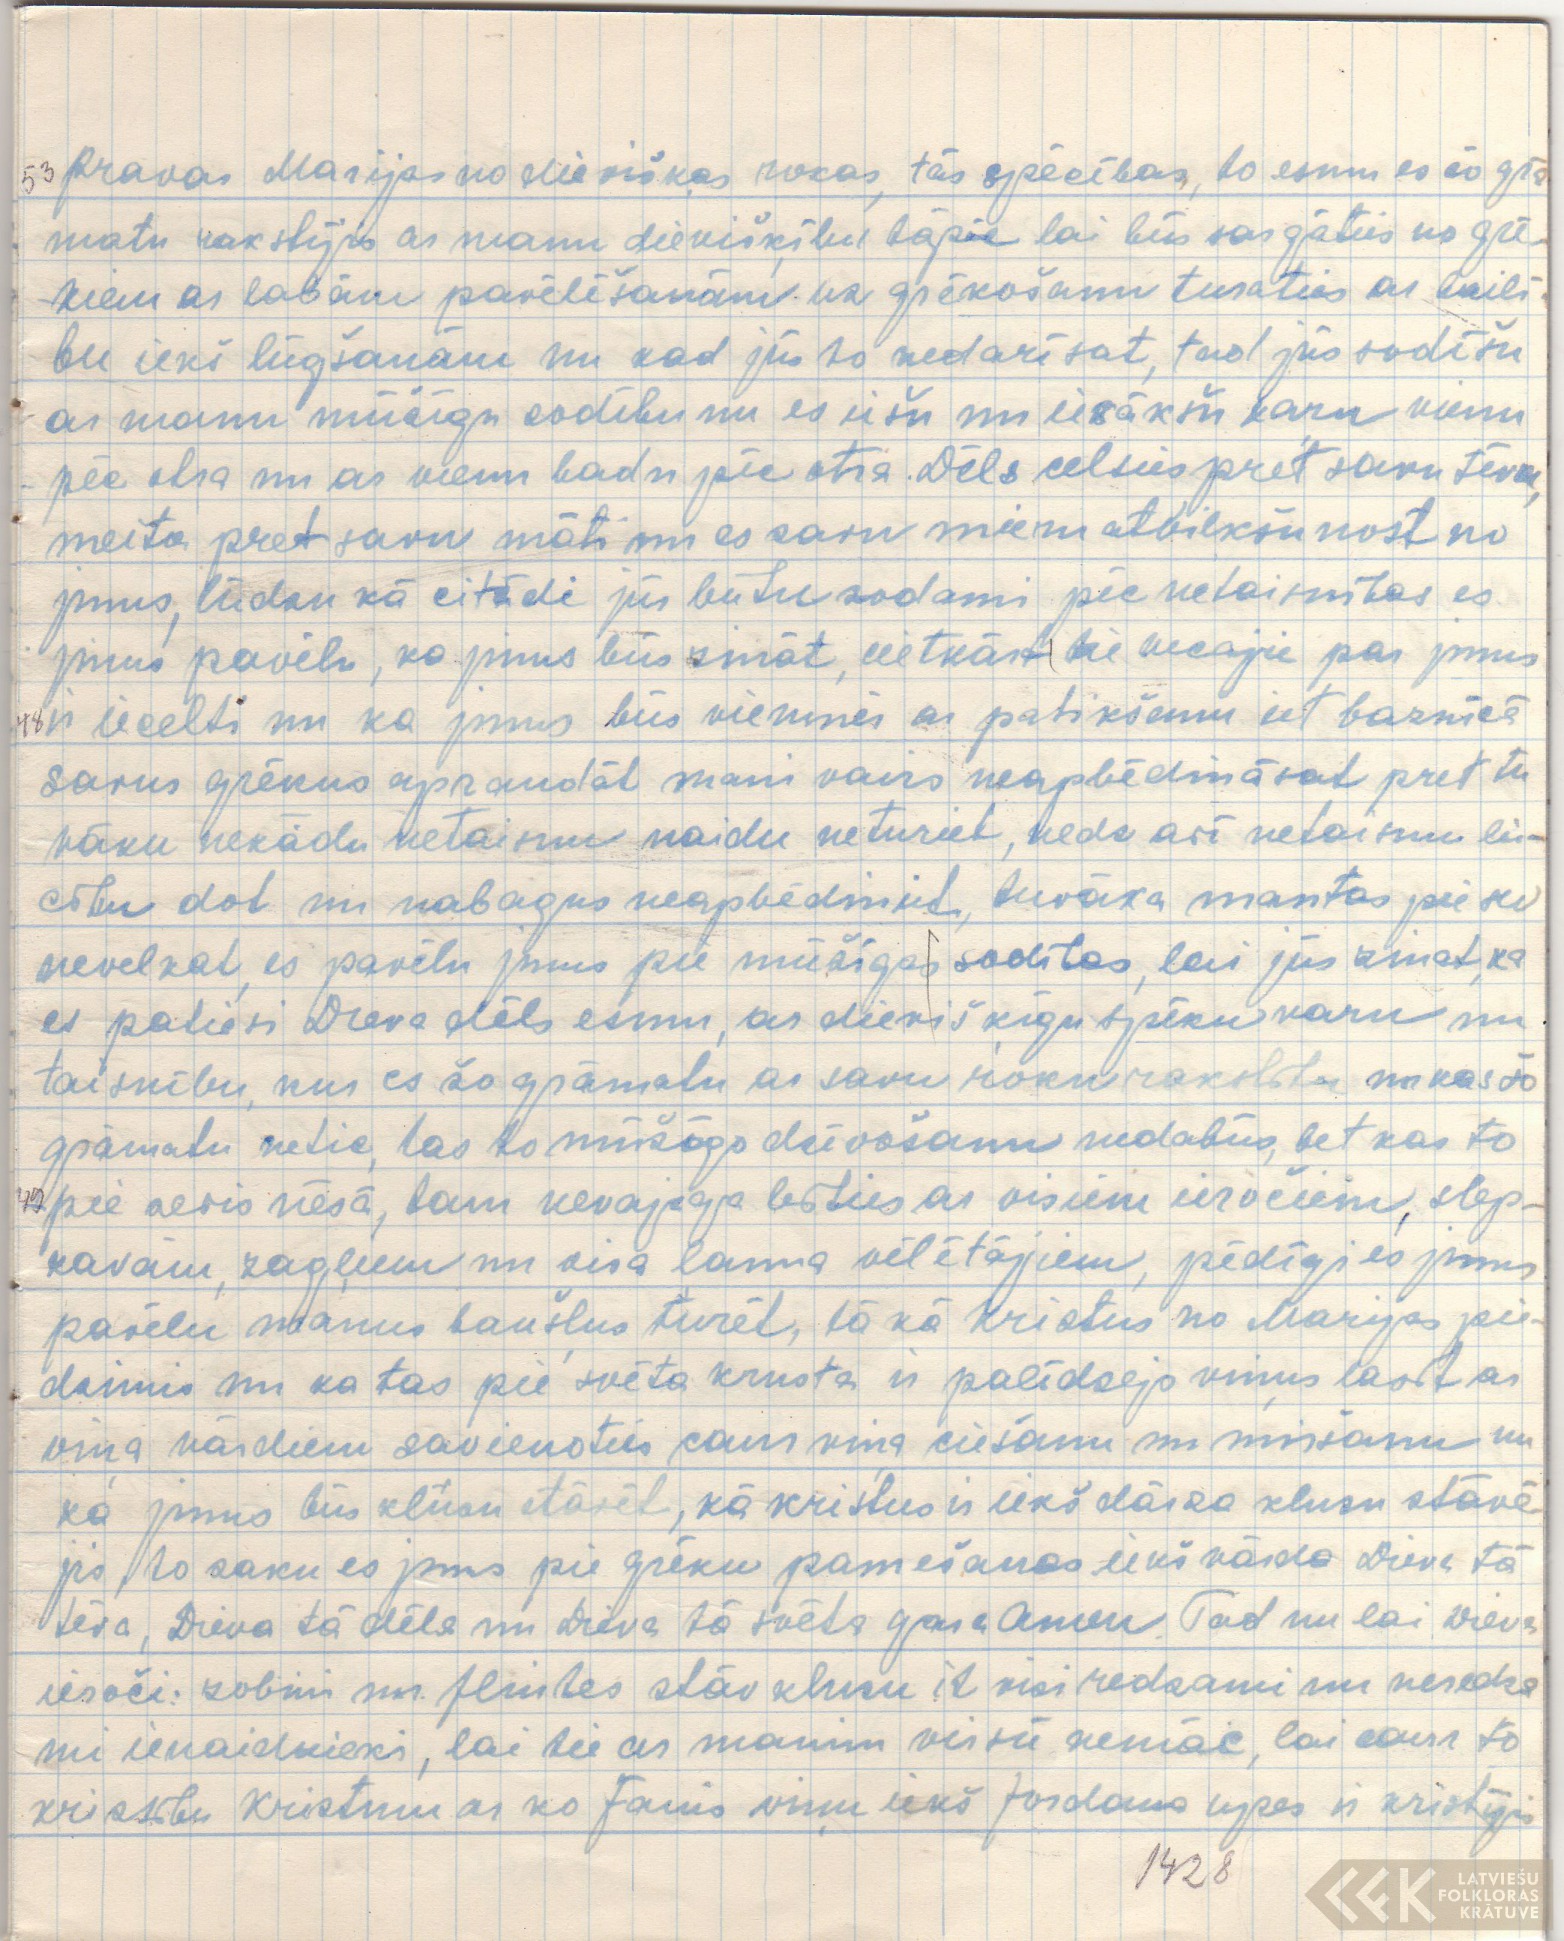 53 pravas Marijas no dieviškas rokas, tās spēcības, to esmu es šo grā
matu rakstījis ar manu dievišķību tāpēc lai būs sargāties no grē-
kiem ar labām pavēlēšanām uz grēkošanu turaties ar bailī-
bu iekš lūgšanām nu kad jūs to nedarīsat, tad jūs sodīšu
ar manu mūžīgu sodību nu es iešu nu iesākšu karu vienu
pēc otra nu ar vienu badu pēc otra. Dēls celsies pret savu tēvu,
meita pret savu māti nu es savu mieru atvilkšu nost no
jums, lūdzu kā citādi jūs būtu sodami pēc netaisnības es
jums pavēlu, ka jums būs zināt, cietkārt tie vecajie par jums
48 ir iecelti nu ka jums būs vienmēr ar patikšanu iet baznīcā
savus grēkus apraudāt mani vairs neapbēdināsat pret tu
vāku nekādu netaisnu naidu neturiet, nedz arī netaisnu lie-
cību dot nu nabagus neapbēdiniet, tuvāka mantas pie sev
nevelkat, es pavēlu jums pie mūžīgas sodības, lai jūs zinat, ka
es patiesi Dieva dēls esmu, ar dievišķīgu spēku varu nu
taisnību, kur es šo grāmatu ar savu roku rakstītu nu kas šo
grāmatu netic, tas to mūžīgo dzīvošanu nedabūs, bet kas to
49 pie sevis nēsā, tam nevajaga bīties ar visiem ieročiem, slep-
kavām, zagļiem nu visa ļauna vēlētājiem, pēdīgi es jums
pavēlu manus baušļus turēt, tā kā Kristus no Marijas pie-
dzimis nu ka tas pie svēta krusta ir palīdzējo viņus lasīt ar
viņa vārdiem savienoties caur viņa ciešanu nu miršanu nu
kā jums būs klusu stāvēt, kā Kristus ir iekš dārza klusu stāvē
jis, to saku es jums pie grēku pamešanas iekš vārda Dieva tā
tēva, Dieva tā dēla nu Dieva tā svēta gara Amen. Tad nu lai Dieva
ieroči: zobini nu flintes stāv klusu it visi redzami nu neredza
mi ienaidnieki, lai tie ar manim virsū nenāc, lai caur to
kristību Kristum ar ko Jānis viņu iekš Jordanas upes ir kristījis
1428
LATVIEŠU
FOLKLORAS
KRĀTUVE